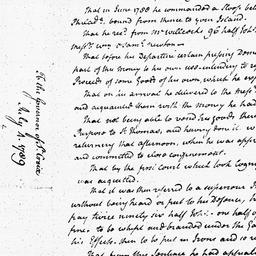 That in June 1788 he commanded a Sloop be
bound from thence to your Island.
That he rec.d from Mr. Willcocks 96 half Joh.s
That before his departure certain pressing
part of the money to his own use intending to
Proceeds of some Goods of his own, which he
That on his arrival he delivered to the
and acquainted them with the Money he had
That not being able to vend his goods there
Purpose to St Thomas, and having done it
returning that afternoon, when he was app
and committed to close confinement.
That by the first Court which took Cogn
was acquitted.
That it was then referred to a Superiour
without being heard or put to his Defence, h
pay twice ninety six half Joh.s. one half of
fine. to be whipt and branded under the Ga
his Effects. then to be put in Irons and to
That from this Sentence he had appeal
To the Governor of St Croix
July 4. 1789